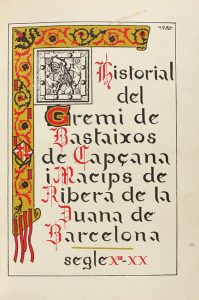 Historial
del
Gremi de
Bastaixos
de Capçana
i Macips de
Ribera de la
Duana de
Barcelona
segle XIII-XX